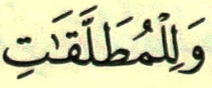 وَلِلْمُطَلَّقَٰتِ